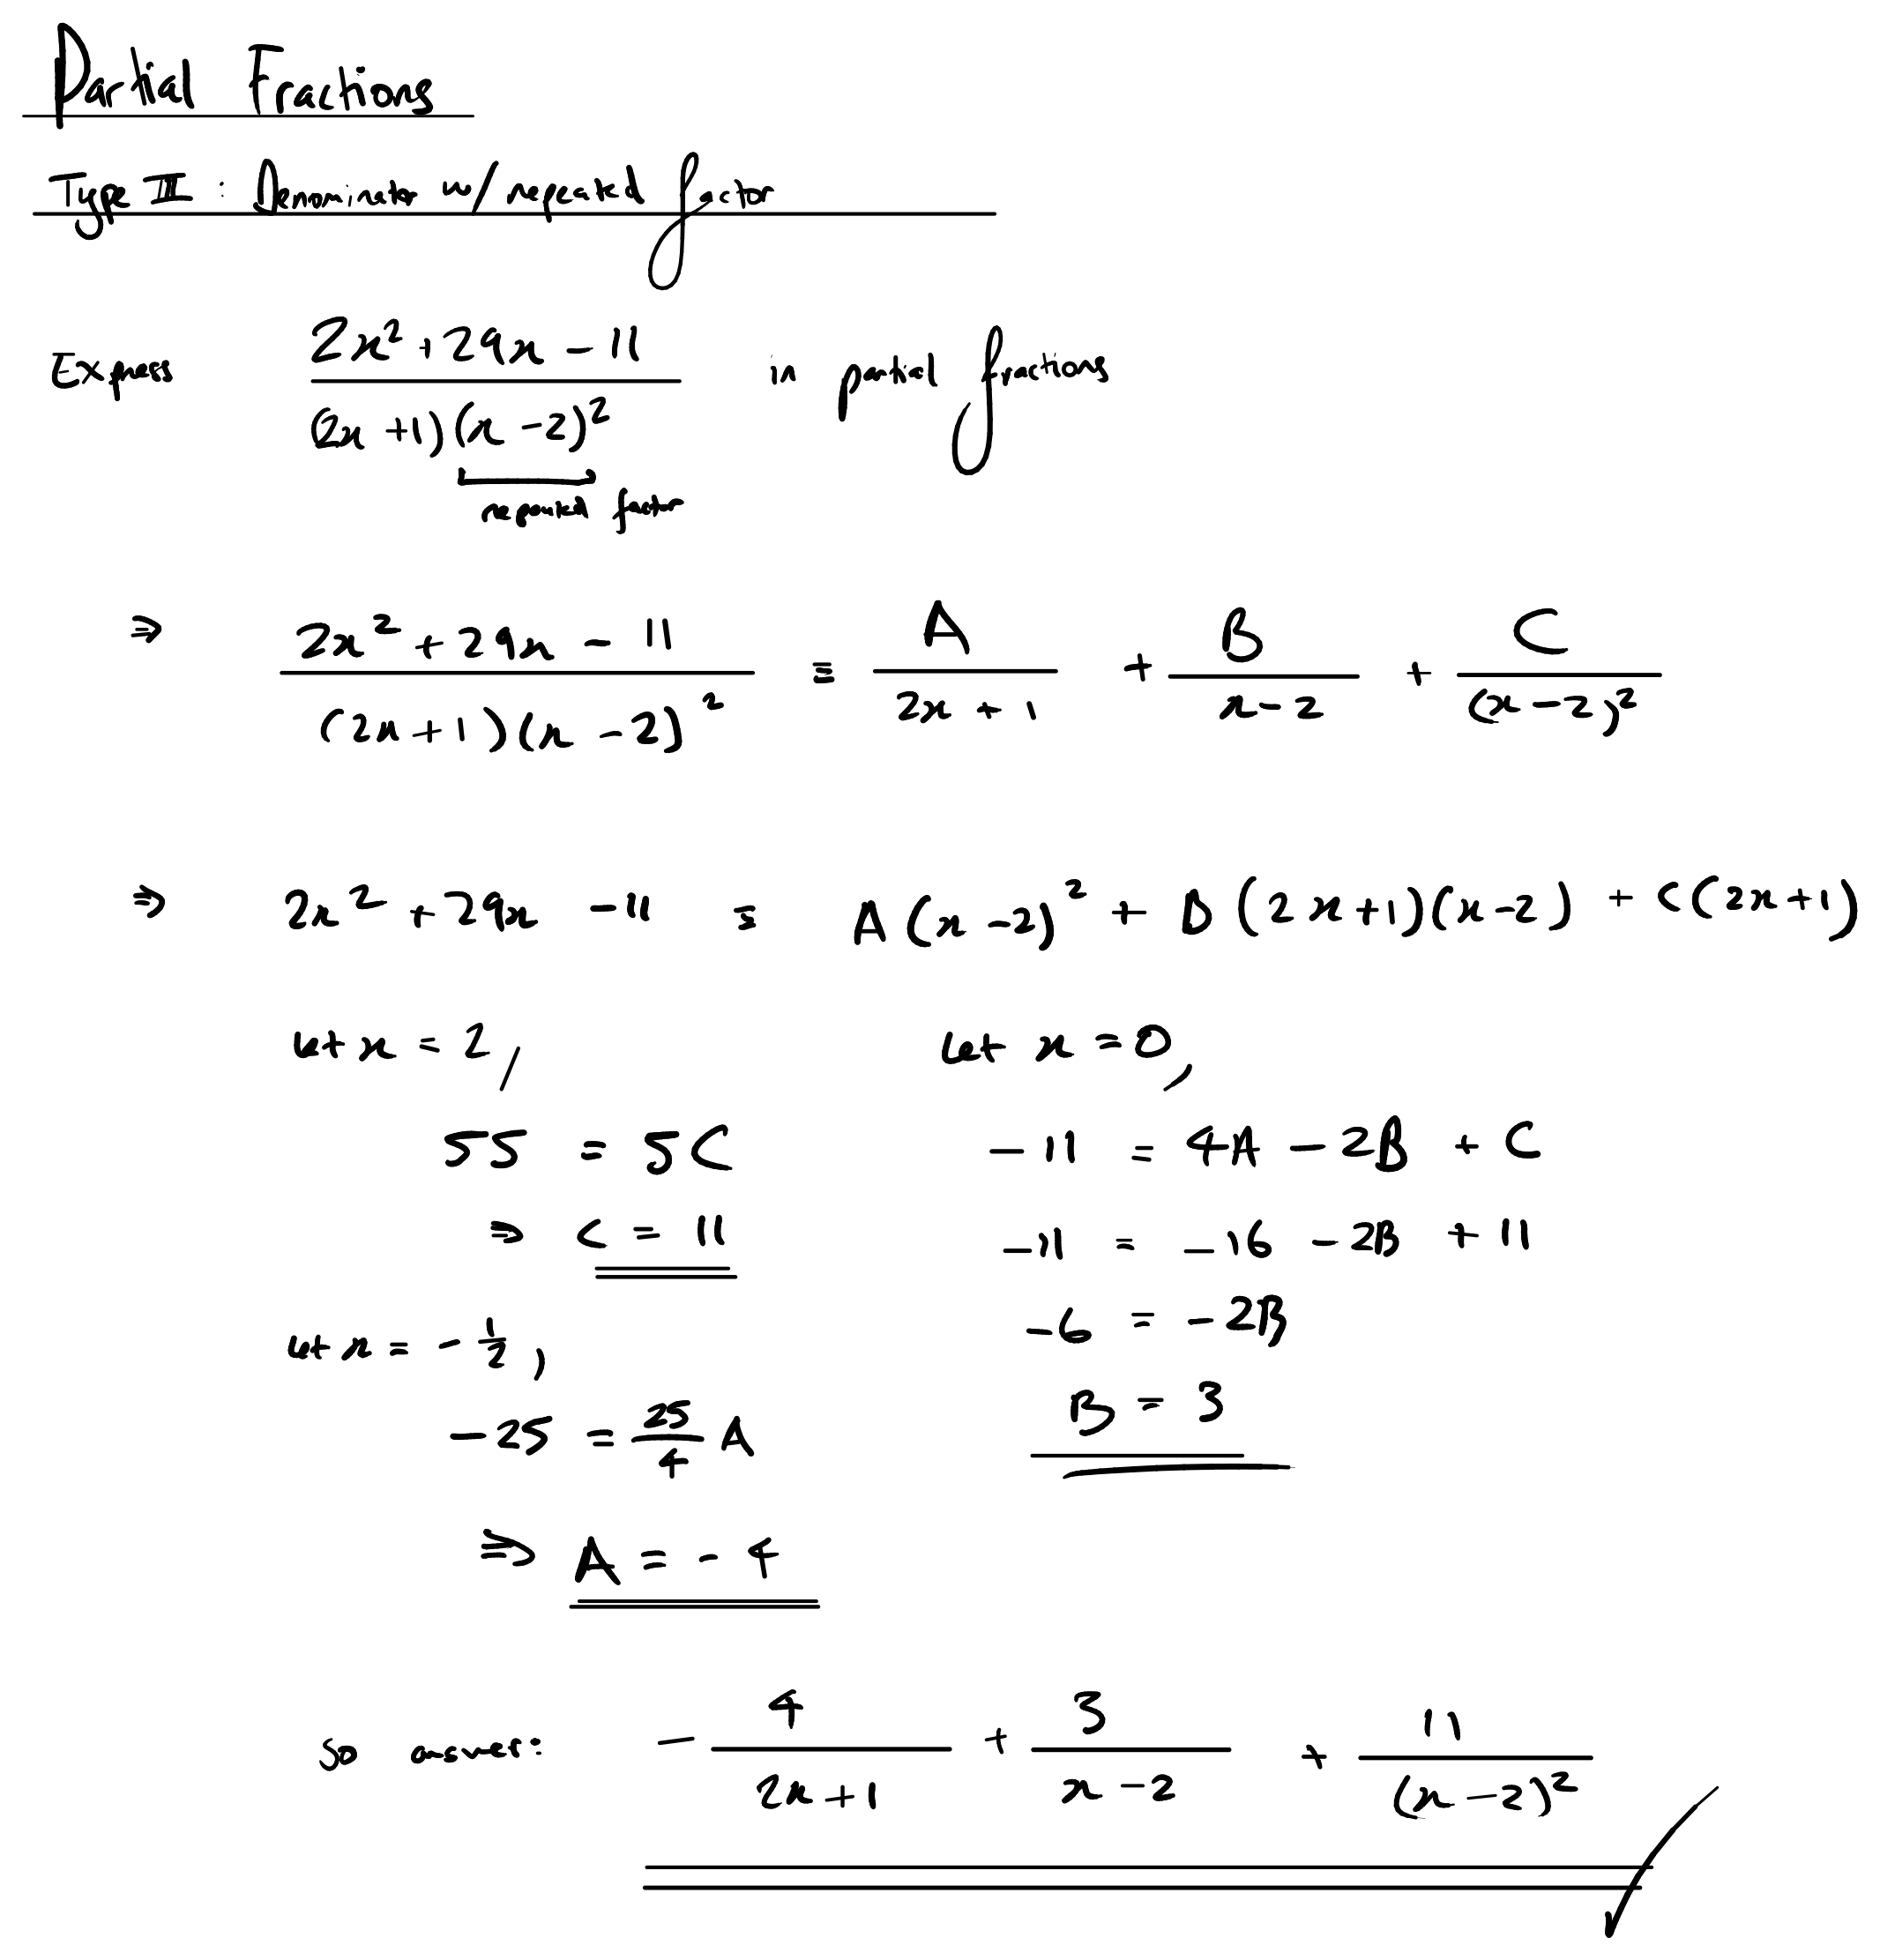 Partial Fractions
Type III : Denominator w/ repeated factor
Express (2x² + 29x - 11) / ((2x + 1)(x - 2)²) in partial fractions
repeated factor
⇒ (2x² + 29x - 11) / ((2x + 1)(x - 2)²) ≡ A / (2x + 1) + B / (x - 2) + C / (x - 2)²
⇒ 2x² + 29x - 11 ≡ A(x - 2)² + B(2x + 1)(x - 2) + C(2x + 1)
let x = 2,
55 = 5C
⇒ C = 11
let x = -1/2,
-25 = 25/4 A
⇒ A = -4
let x = 0,
-11 = 4A - 2B + C
-11 = -16 - 2B + 11
-6 = -2B
B = 3
so answer: - 4 / (2x + 1) + 3 / (x - 2) + 11 / (x - 2)² ✓